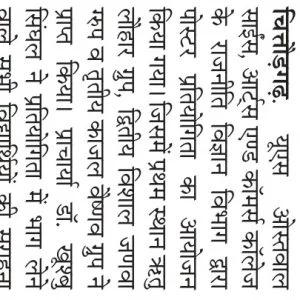 चित्तौड़गढ़. यूएस ओस्तवाल
साइंस, आर्टस एण्ड कॉमर्स कॉलेज
के राजनीति विज्ञान विभाग द्वारा
पोस्टर प्रतियोगिता का आयोजन
किया गया। जिसमें प्रथम स्थान ऋतु
लौहार ग्रुप, द्वितीय विशाल उणवा
ग्रुप व तृतीय काजल वैष्णव ग्रुप ने
प्राप्त किया। प्राचार्या डॉ. खुश्बु
सिंघल ने प्रतियोगिता में भाग लेने
वाले सभी विद्यार्थियों की सराहना